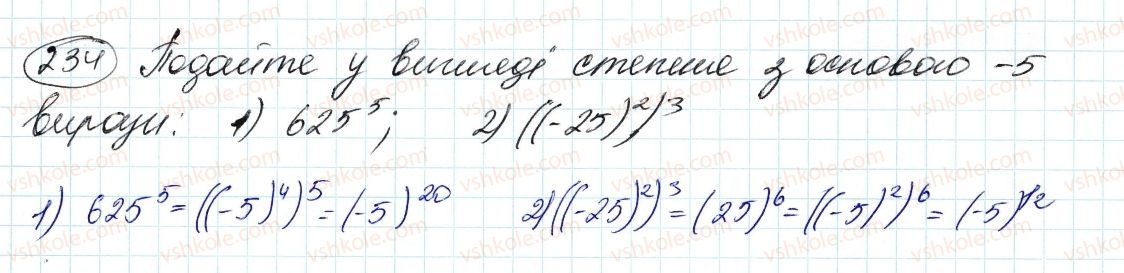 234 Подайте у вигляді степеня з основою -5
вирази: 1) 625^5; 2) ((-25)^2)^3
1) 625^5 = ((-5)^4)^5 = (-5)^20 2) ((-25)^2)^3 = (25)^6 = ((-5)^2)^6 = (-5)^12